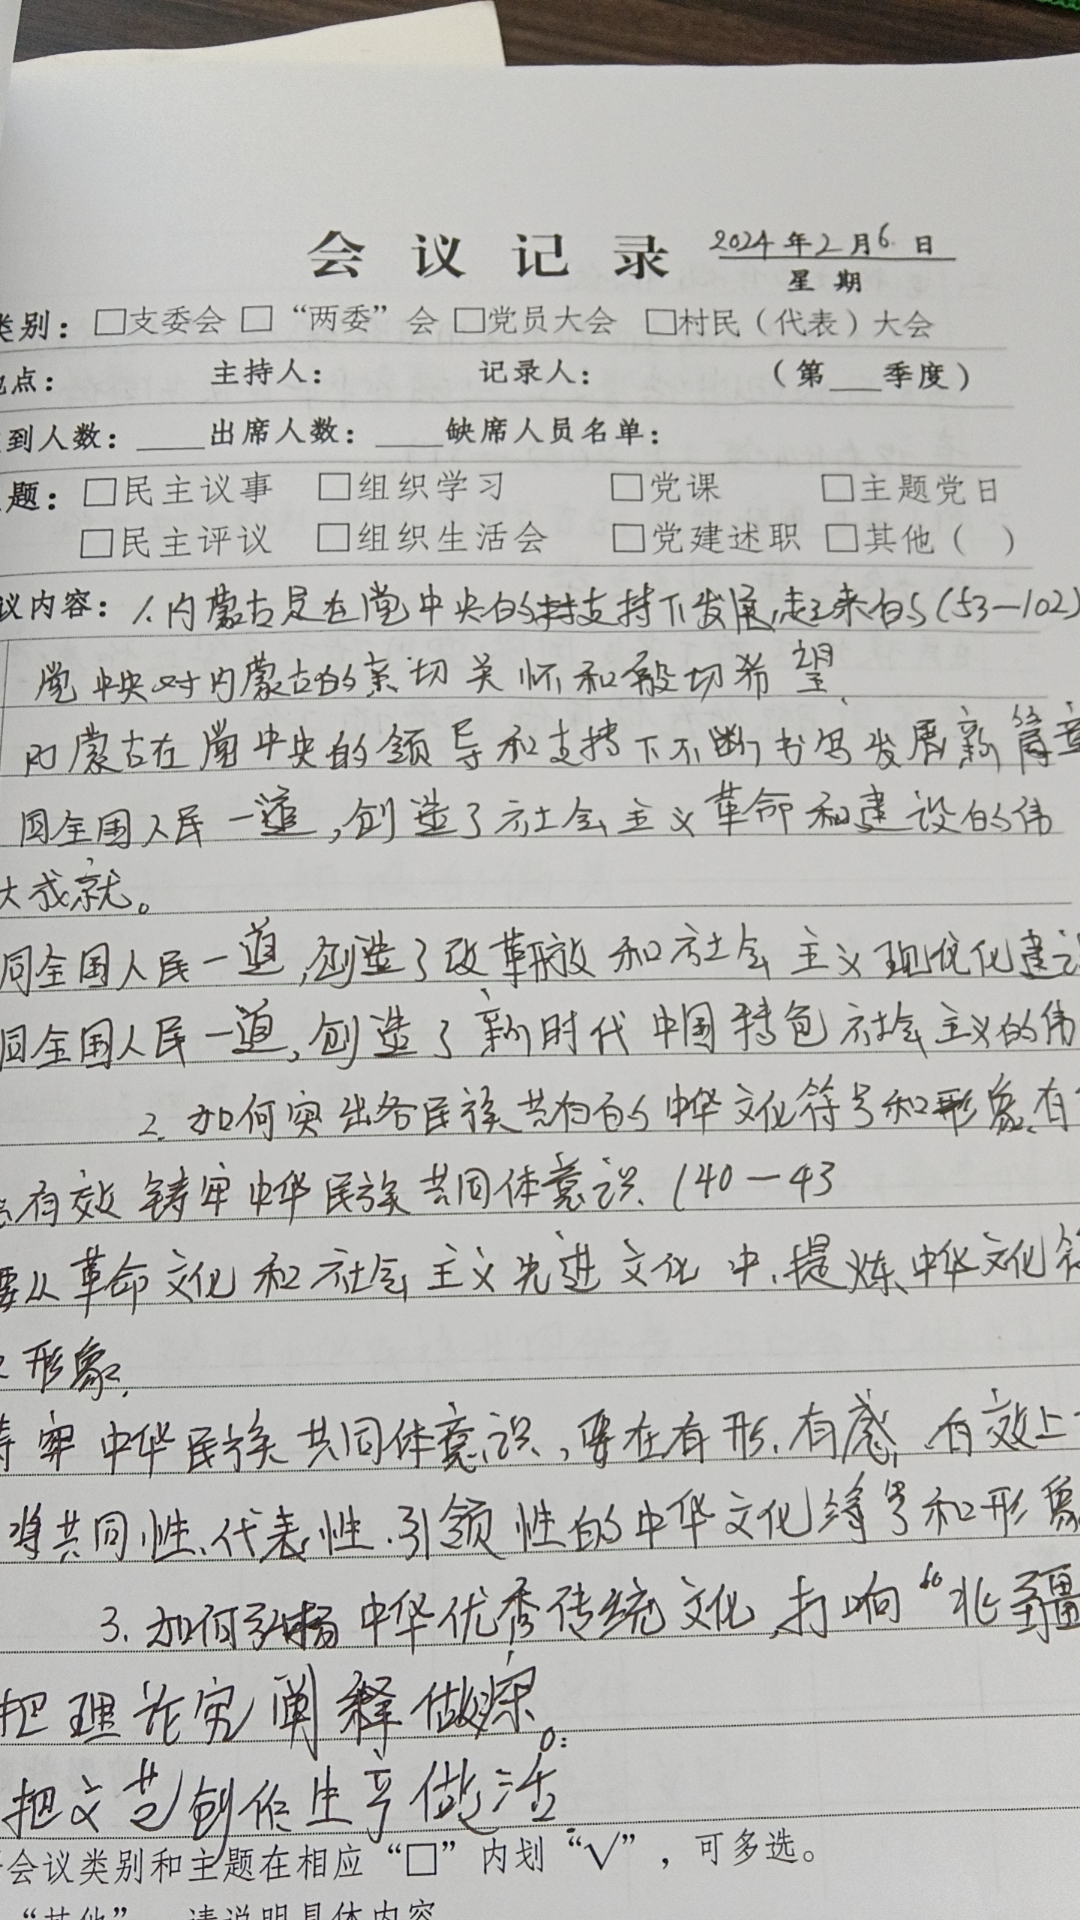 会议记录 2024年2月6日
星期
类别：□支委会 □“两委”会 □党员大会 □村民（代表）大会
地点： 主持人： 记录人： （第___季度）
到人数：____出席人数：____缺席人员名单：
题：□民主议事 □组织学习 □党课 □主题党日
□民主评议 □组织生活会 □党建述职 □其他（ ）
议内容：1.内蒙古是在党中央的支持下发展起来的(53—102)
党中央对内蒙古的亲切关怀和殷切希望
内蒙古在党中央的领导和支持下不断书写发展新篇章
同全国人民一道,创造了社会主义革命和建设的伟
大成就。
同全国人民一道,创造了改革开放和社会主义现代化建设
同全国人民一道,创造了新时代中国特色社会主义的伟
2.如何突出各民族共有的中华文化符号和形象,有
有效铸牢中华民族共同体意识(40—43
要从革命文化和社会主义先进文化中,提炼中华文化符
形象.
铸牢中华民族共同体意识,要在有形、有感、有效上
将共同性、代表性、引领性的中华文化符号和形象
3.如何弘扬中华优秀传统文化,打响“北疆
把理论究阐释做深。
把文艺创作生产做活
会议类别和主题在相应“□”内划“√”，可多选。
“其他”，请说明具体内容